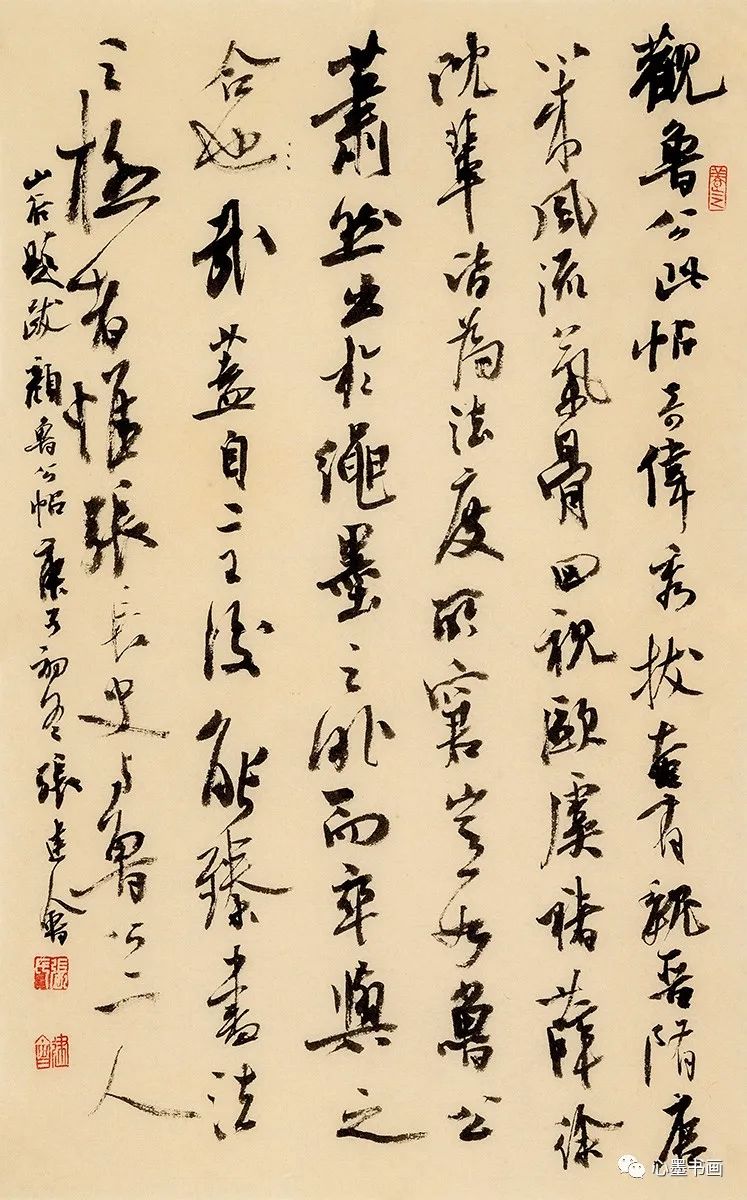 觀魯公此帖奇偉秀拔奄有魏晉隋唐
以來風流氣骨回視歐虞褚薛徐
沈輩皆為法度所窘豈如魯公
蕭然出於繩墨之外而卒與之
合也哉蓋自二王後能臻書法
之極者惟張長史與魯公二人
山谷題跋顏魯公帖庚子初冬張建會
建會
心墨书画